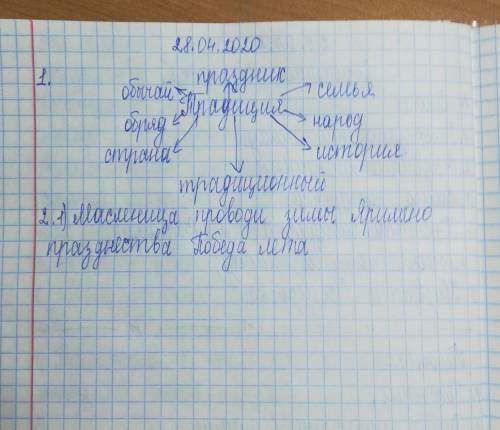 28.04.2020
1. праздник
обычай Традиция семья
обряд народ
страна история
традиционный
2. 1) Масленица проводи зимы Ярилино
празднества Победа лета